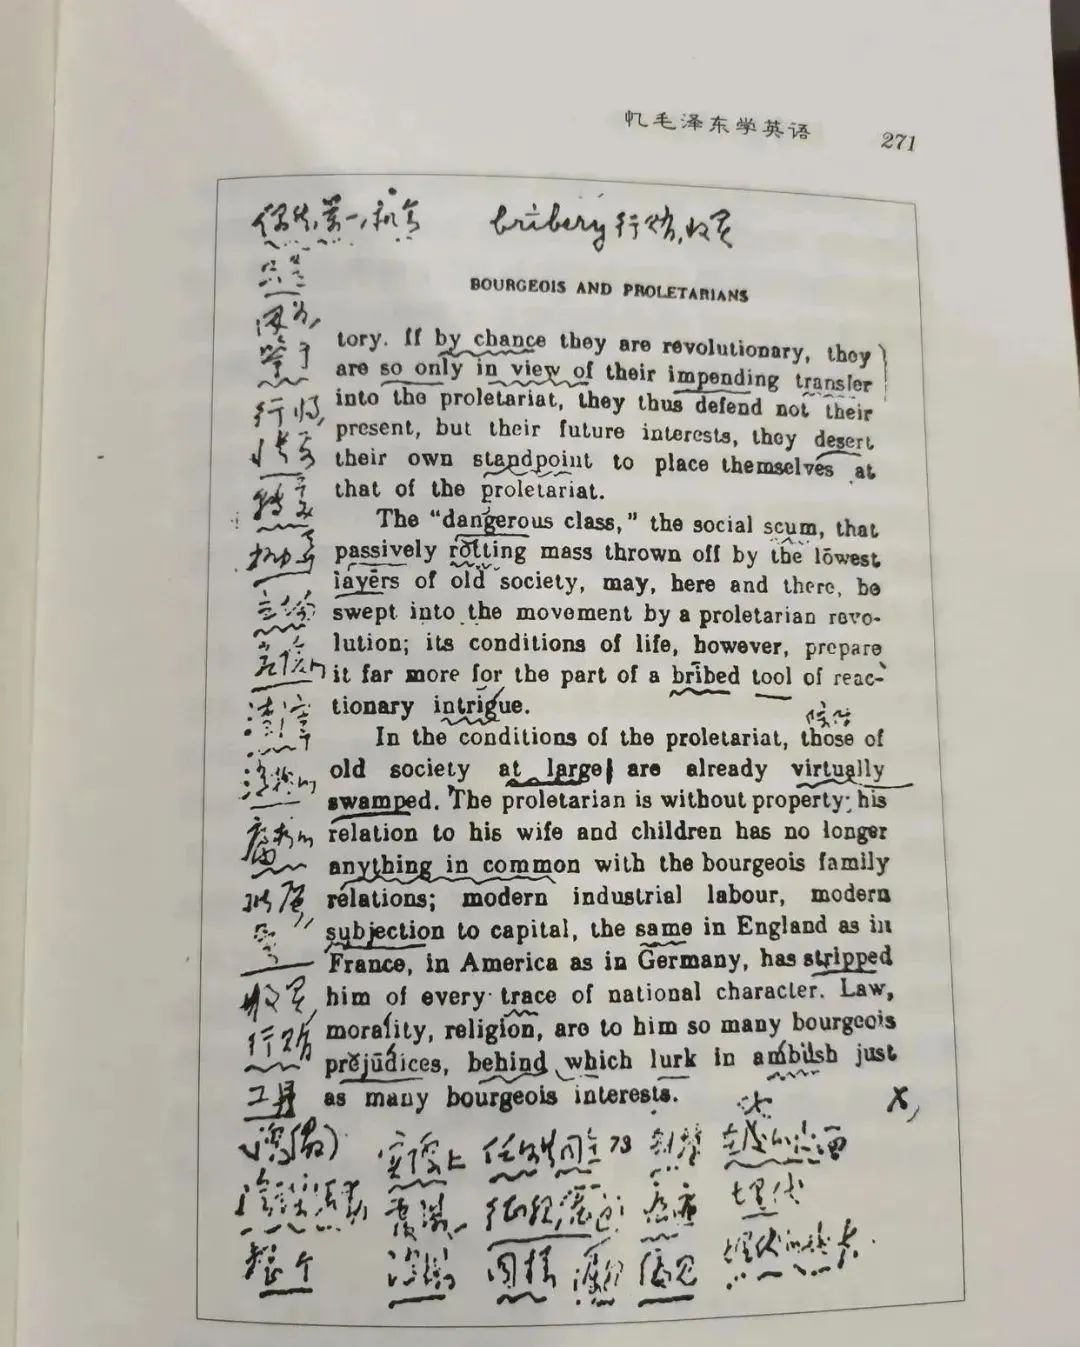 忆毛泽东学英语 271
偶然,万一,机会 bribery 行贿,收买
BOURGEOIS AND PROLETARIANS
tory. If by chance they are revolutionary, they
are so only in view of their impending transfer
into the proletariat, they thus defend not their
present, but their future interests, they desert
their own standpoint to place themselves at
that of the proletariat.
The “dangerous class,” the social scum, that
passively rotting mass thrown off by the lowest
layers of old society, may, here and there, be
swept into the movement by a proletarian revo-
lution; its conditions of life, however, prepare
it far more for the part of a bribed tool of reac-
tionary intrigue.
In the conditions of the proletariat, those of
old society at large are already virtually
swamped. The proletarian is without property; his
relation to his wife and children has no longer
anything in common with the bourgeois family
relations; modern industrial labour, modern
subjection to capital, the same in England as in
France, in America as in Germany, has stripped
him of every trace of national character. Law,
morality, religion, are to him so many bourgeois
prejudices, behind which lurk in ambush just
as many bourgeois interests.
只是
因为,
鉴于
行将,
转变
立场
渣滓
消极的
腐朽的
收买
行贿
工具
阴谋
整个
实际上 任何共同之 73
同样 痕迹 偏见
埋伏